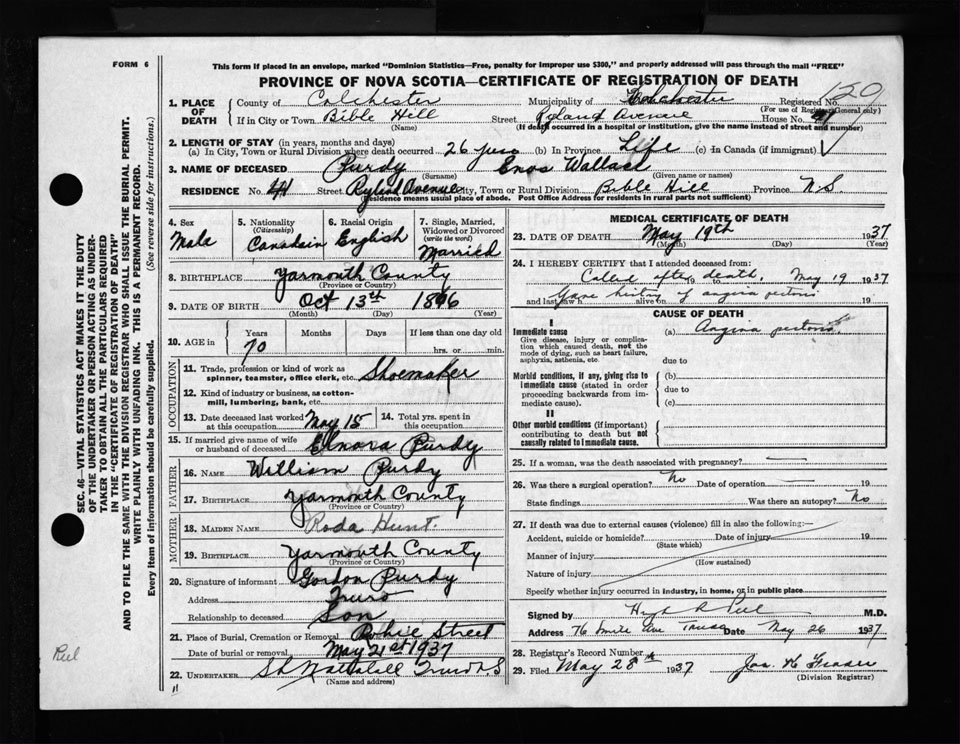 FORM 6
This form if placed in an envelope, marked "Dominion Statistics—Free, penalty for improper use $300," and properly addressed will pass through the mail "FREE"
PROVINCE OF NOVA SCOTIA—CERTIFICATE OF REGISTRATION OF DEATH
1. PLACE OF DEATH
County of Colchester Municipality of Colchester Registered No. 120
(For use of Registrar General only)
If in City or Town Bible Hill Street Ryland Avenue House No.
(Name) (If death occurred in a hospital or institution, give the name instead of street and number)
2. LENGTH OF STAY (in years, months and days)
(a) In City, Town or Rural Division where death occurred 26 yrs (b) In Province Life (c) In Canada (if immigrant)
3. NAME OF DECEASED Purdy Enos Wallace
(Surname) (Given name or names)
RESIDENCE No. 41 Street Ryland Avenue City, Town or Rural Division Bible Hill Province N.S
(Residence means usual place of abode. Post Office Address for residents in rural parts not sufficient)
4. Sex Male
5. Nationality (Citizenship) Canadain
6. Racial Origin English
7. Single, Married, Widowed or Divorced (write the word) Married
8. BIRTHPLACE Yarmouth County
(Province or Country)
9. DATE OF BIRTH Oct 13th 1866
(Month) (Day) (Year)
10. AGE in
Years Months Days If less than one day old
70 hrs. or min.
OCCUPATION
11. Trade, profession or kind of work as spinner, teamster, office clerk, etc. Shoemaker
12. Kind of industry or business, as cotton-mill, lumbering, bank, etc.
13. Date deceased last worked at this occupation May 15
14. Total yrs. spent in this occupation
15. If married give name of wife or husband of deceased Elnora Purdy
FATHER
16. NAME William Purdy
17. BIRTHPLACE Yarmouth County
(Province or Country)
MOTHER
18. MAIDEN NAME Roda Hunt.
19. BIRTHPLACE Yarmouth County
(Province or Country)
20. Signature of informant Gordon Purdy
Address Truro
Relationship to deceased Son
21. Place of Burial, Cremation or Removal Robie Street
Date of burial or removal May 21st 1937
22. UNDERTAKER Truro N.S
(Name and address)
11
MEDICAL CERTIFICATE OF DEATH
23. DATE OF DEATH May 19th 1937
(Month) (Day) (Year)
24. I HEREBY CERTIFY that I attended deceased from:
Called after death, 19 to May 19 1937
and last saw h alive on 19
Gave history of angina pectoris
CAUSE OF DEATH
I
Immediate cause (a) Angina pectoris
Give disease, injury or complication which caused death, not the mode of dying, such as heart failure, asphyxia, asthenia, etc.
due to
Morbid conditions, if any, giving rise to immediate cause (stated in order proceeding backwards from immediate cause).
(b)
due to
(c)
II
Other morbid conditions (if important) contributing to death but not causally related to immediate cause.
25. If a woman, was the death associated with pregnancy?
26. Was there a surgical operation? No Date of operation 19
State findings Was there an autopsy? No
27. If death was due to external causes (violence) fill in also the following:—
Accident, suicide or homicide? Date of injury 19
(State which)
Manner of injury
(How sustained)
Nature of injury
Specify whether injury occurred in industry, in home, or in public place
Signed by M.D.
Address 76 Ave Truro Date May 26 1937
28. Registrar's Record Number
29. Filed May 28th 1937 Jas. K Fraser
(Division Registrar)
SEC. 46—VITAL STATISTICS ACT MAKES IT THE DUTY
OF THE UNDERTAKER OR PERSON ACTING AS UNDER-
TAKER TO OBTAIN ALL THE PARTICULARS REQUIRED
IN THE "CERTIFICATE OF REGISTRATION OF DEATH"
AND TO FILE THE SAME WITH THE DIVISION REGISTRAR WHO SHALL ISSUE THE BURIAL PERMIT.
WRITE PLAINLY WITH UNFADING INK. THIS IS A PERMANENT RECORD.
Every item of information should be carefully supplied. (See reverse side for instructions.)